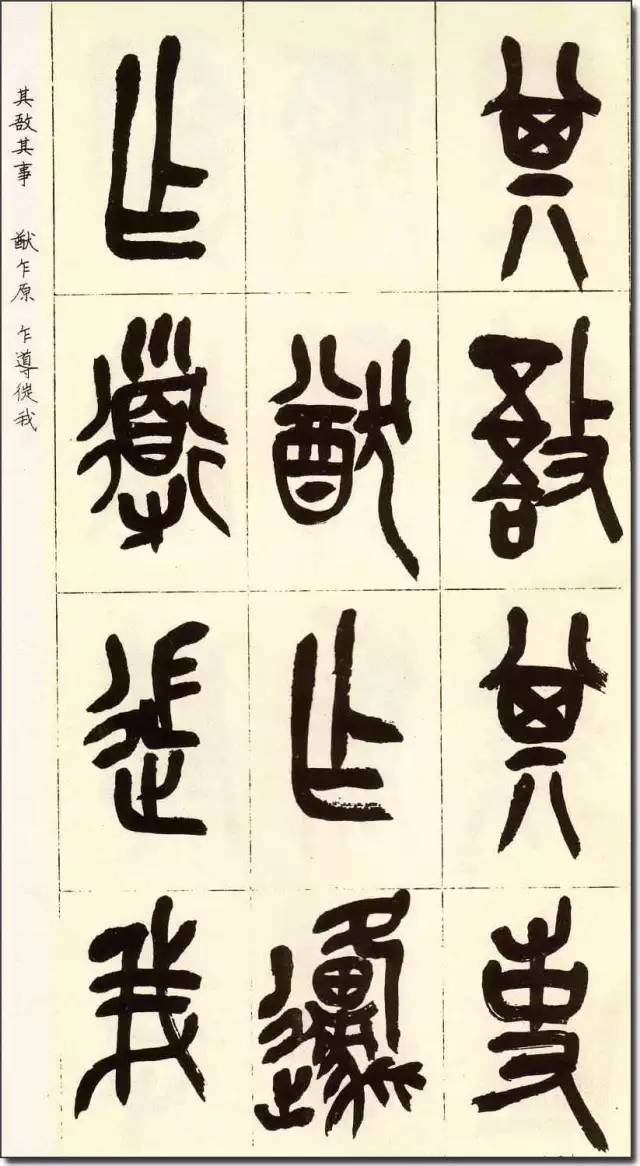 其敔其事
猷乍邍
乍導從我
其敔其事 猷乍原 乍導從我